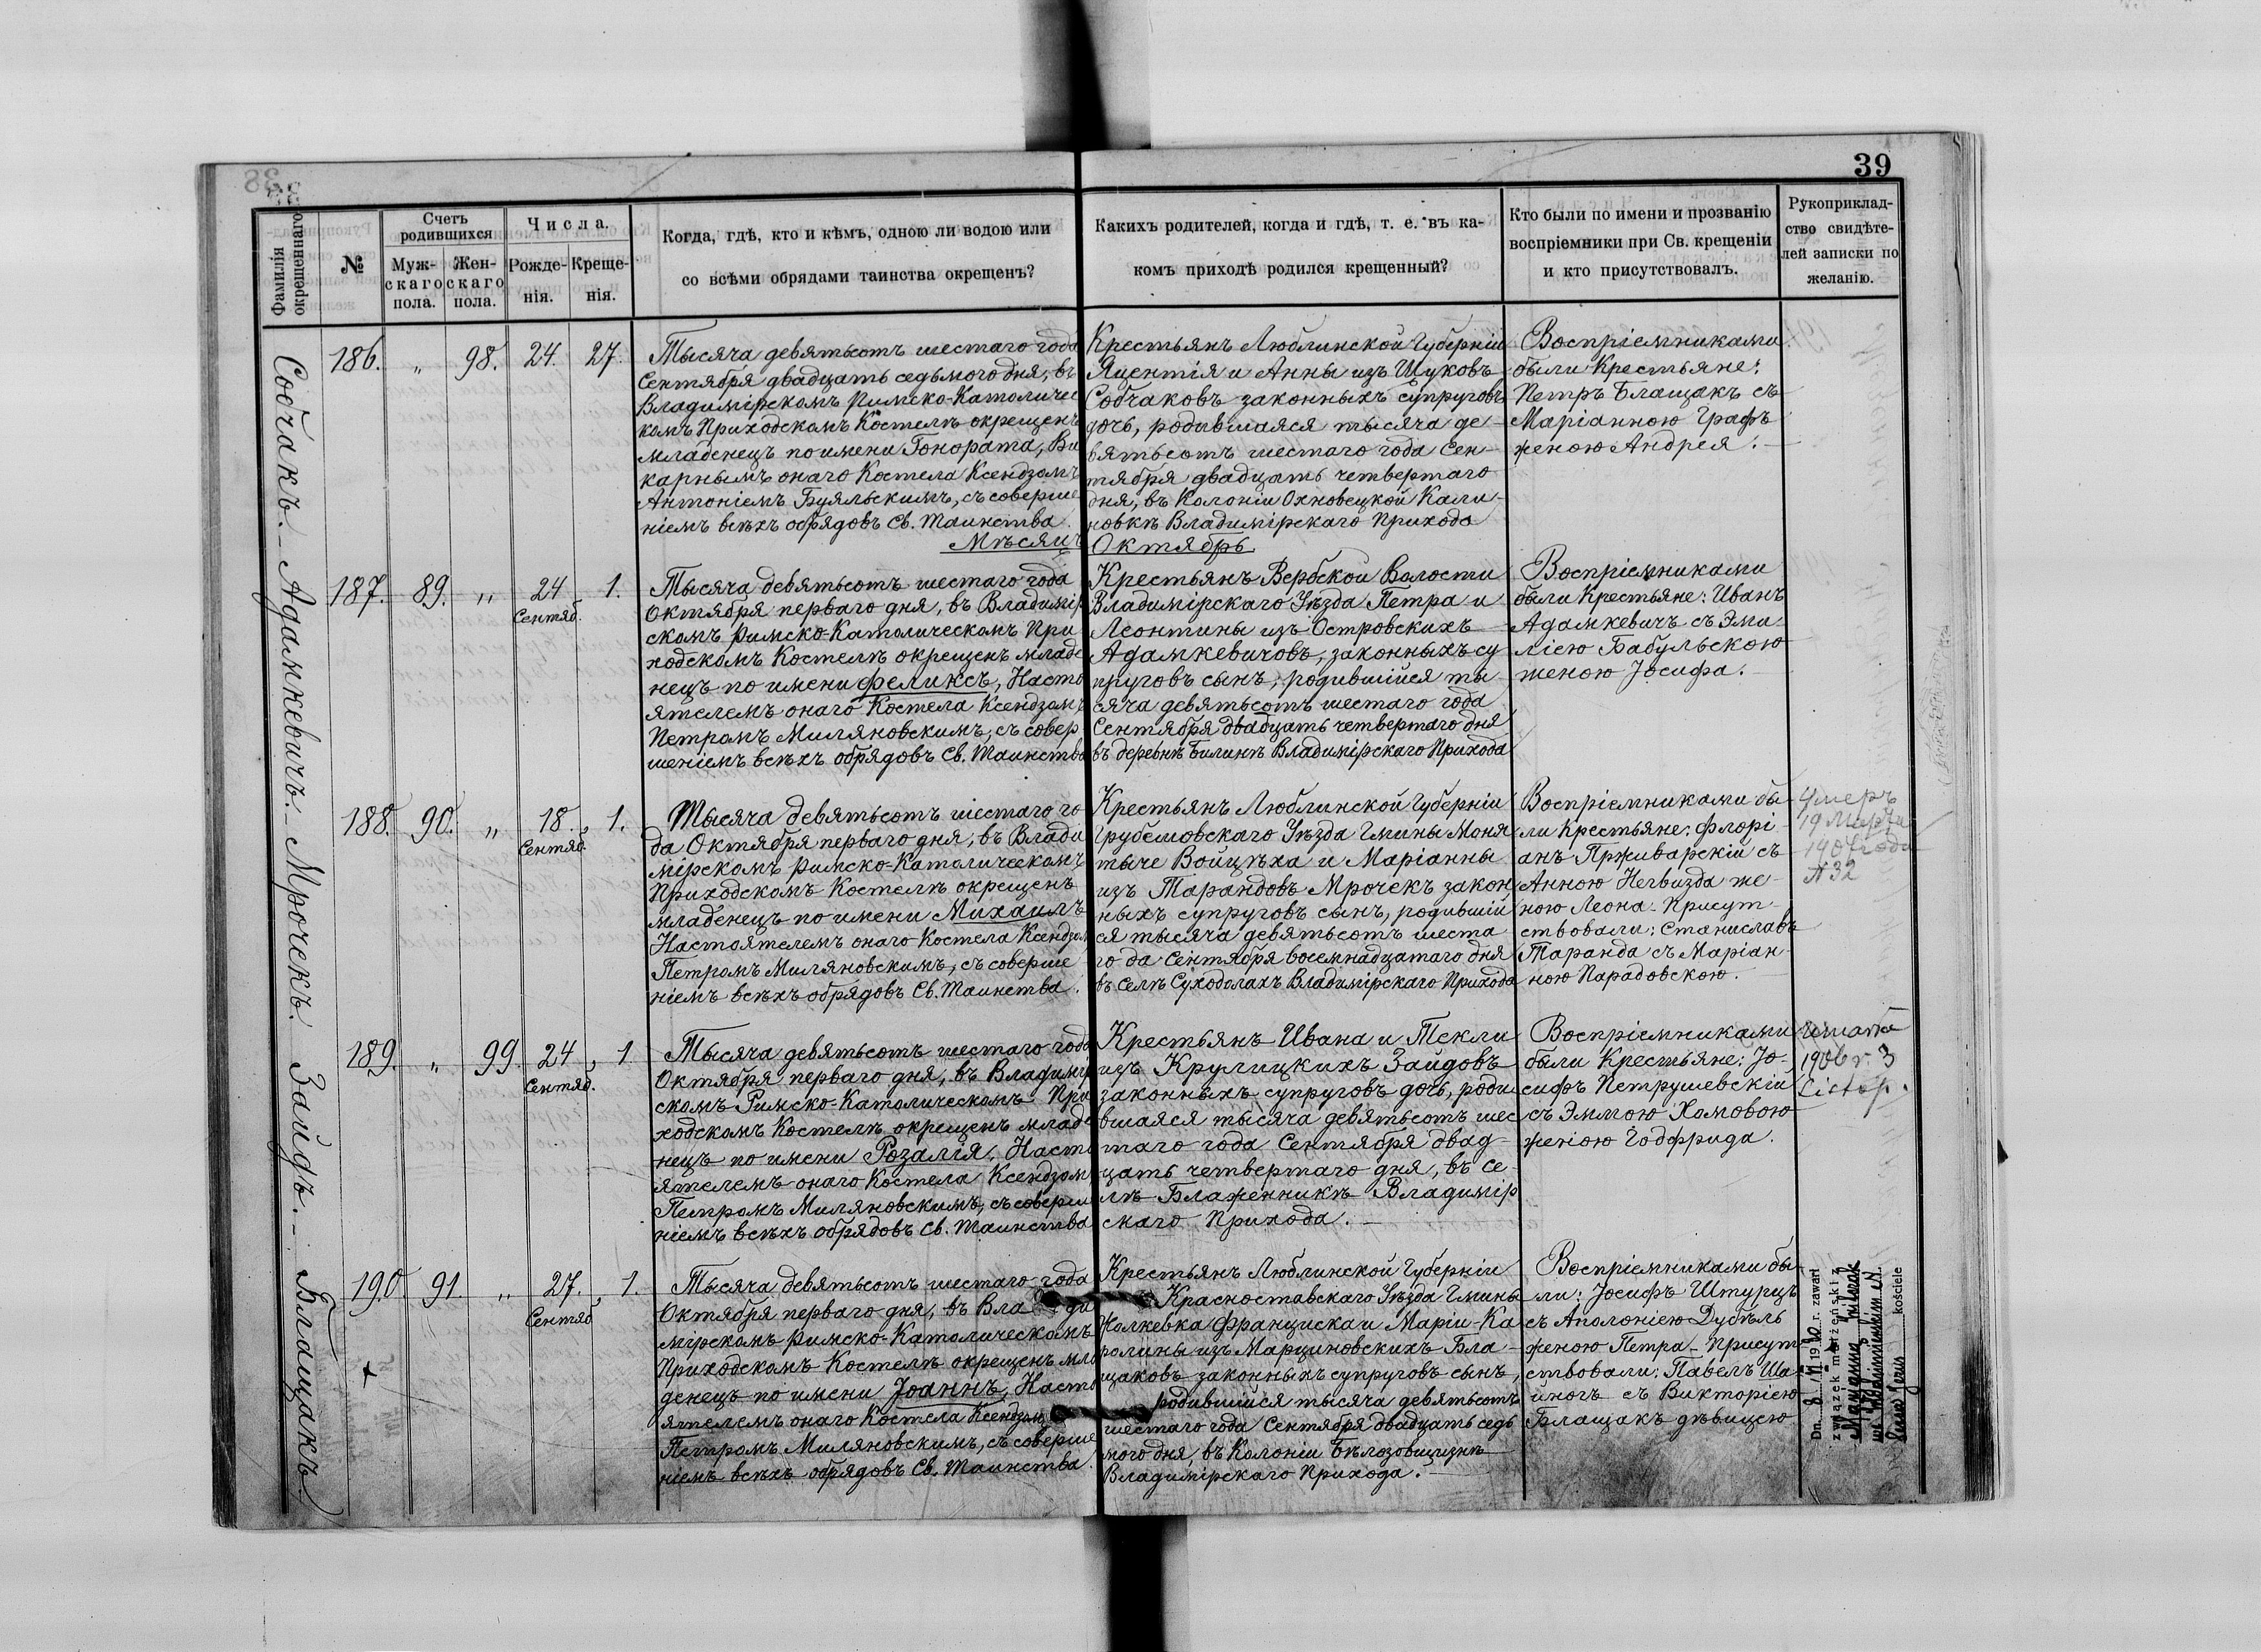 39
Фамилія окрещеннаго.
№
Счетъ родившихся
Муж-
скаго
пола.
Жен-
скаго
пола.
Числа.
Рожде-
нія.
Креще-
нія.
Когда, гдѣ, кто и кѣмъ, одною ли водою или
со всѣми обрядами таинства окрещенъ?
Каихъ родителей, когда и гдѣ, т. е. въ ка-
комъ приходѣ родился крещенный?
Кто были по имени и прозванію
воспріемники при Св. крещеніи
и кто присутствовалъ.
Рукоприклад-
ство свидѣте-
лей записки по
желанію.
Собчакъ.
186. „ 98. 24. 27.
Тысяча девятьсотъ шестаго года
Сентября двадцать седьмого дня, въ
Владимірскомъ Римско-Католичес
комъ Приходскомъ Костелѣ окрещенъ
младенецъ по имени Гонората, Ви
карнымъ онаго Костела Ксендзомъ
Антоніемъ Буяльскимъ, съ соверше
ніемъ всѣхъ обрядовъ Св. Таинства.
Крестьянъ Люблинской Губерніи
Яцентія и Анны изъ Щуковъ
Собчаковъ законныхъ супруговъ
дочь, родившаяся тысяча де-
вятьсотъ шестаго года Сен-
тября двадцать четвертаго
дня, въ Колоніи Охновецкой Кали-
новкѣ Владимірскаго Прихода
Воспріемниками
были Крестьяне:
Петръ Блащакъ съ
Маріанною Графъ
женою Андрея.
Мѣсяцъ Октябрь
Адамкевичъ.
187. 89. „ 24 Сентяб. 1.
Тысяча девятьсотъ шестаго года
Октября перваго дня, въ Владимір
скомъ Римско-Католическомъ При
ходскомъ Костелѣ окрещенъ младе
нецъ по имени Феликсъ, Насто
ятелемъ онаго Костела Ксендзомъ
Петромъ Миляновскимъ, съ совер
шеніемъ всѣхъ обрядовъ Св. Таинства
Крестьянъ Вербской Волости
Владимірскаго Уѣзда Петра и
Леонтины изъ Островскихъ
Адамкевичовъ, законныхъ су
пруговъ сынъ, родившійся ты-
сяча девятьсотъ шестаго года
Сентября двадцать четвертаго дня
въ деревнѣ Билинѣ Владимірскаго Прихода
Воспріемниками
были Крестьяне: Иванъ
Адамкевичъ съ Эми
ліею Бабульскою
женою Іосифа.
Мрочекъ.
188. 90. „ 18. Сентяб. 1.
Тысяча девятьсотъ шестаго го
да Октября перваго дня, въ Влади
мірскомъ Римско-Католическомъ
Приходскомъ Костелѣ окрещенъ
младенецъ по имени Михаилъ
Настоятелемъ онаго Костела Ксендзом
Петромъ Миляновскимъ, съ соверше
ніемъ всѣхъ обрядовъ Св. Таинства.
Крестьянъ Люблинской Губерніи
Грубешовскаго Уѣзда Гмины Моня
тыче Войцѣха и Маріанны
изъ Тарандовъ Мрочекъ закон
ныхъ супруговъ сынъ, родившій
ся тысяча девятьсотъ шеста
го да Сентября восемнадцатаго дня
въ селѣ Суходолахъ Владимірскаго Прихода
Воспріемниками бы-
ли Крестьяне: Флорі-
анъ Прживарскій съ
Анною Негвизда же-
ною Леона. Присут-
ствовали: Станиславъ
Таранда съ Маріан-
ною Парадовскою.
Умеръ
19 Марта
года
№ 32
Зайдъ.
189. „ 99. 24 Сентяб. 1
Тысяча девятьсотъ шестаго года
Октября перваго дня, въ Владимір
скомъ Римско-Католическомъ При
ходскомъ Костелѣ окрещенъ младе
нецъ по имени Розалія, Насто
ятелемъ онаго Костела Ксендзом
Петромъ Миляновскимъ, съ соверше
ніемъ всѣхъ обрядовъ Св. Таинства
Крестьянъ Ивана и Текли
изъ Крулицкихъ Зайдовъ
законныхъ супруговъ дочь, роди
вшаяся тысяча девятьсотъ шес
таго года Сентября двад-
цать четвертаго дня, въ се-
лѣ Блаженникѣ Владимір
скаго Прихода.
Воспріемниками
были Крестьяне: Іо-
сифъ Петрушевскій
съ Эммою Хамовою
женою Годфрида.
1906 r. 3
Listop.
Блащакъ.
190 91. „ 27. Сентяб 1.
Тысяча девятьсотъ шестаго года
Октября перваго дня, въ Влади
мірскомъ Римско-Католическомъ
Приходскомъ Костелѣ окрещенъ мла
денецъ по имени Іоаннъ, Насто
ятелемъ онаго Костела Ксендзом
Петромъ Миляновскимъ, съ соверше
ніемъ всѣхъ обрядовъ Св. Таинства
Крестьянъ Люблинской Губерніи
Красноставскаго Уѣзда Гмины
Жолкевка Франциска и Маріи-Ка
ролины изъ Марциновскихъ Бла-
щаковъ законныхъ супруговъ сынъ,
родившійся тысяча девятьсотъ
шестаго года Сентября двадцать седь
мого дня, въ Колоніи Бѣлозовщизнѣ
Владимірскаго Прихода.
Воспріемниками бы-
ли: Іосифъ Штурцъ
съ Аполоніею Дубѣль
женою Петра. Присут-
ствовали: Павелъ Ша-
йногъ съ Викторіею
Блащакъ дѣвицею
Dn. 8. VI 1930 r. zawarł
związek małżeński z
Maryanną
we Włodzimierzu W.
kościele